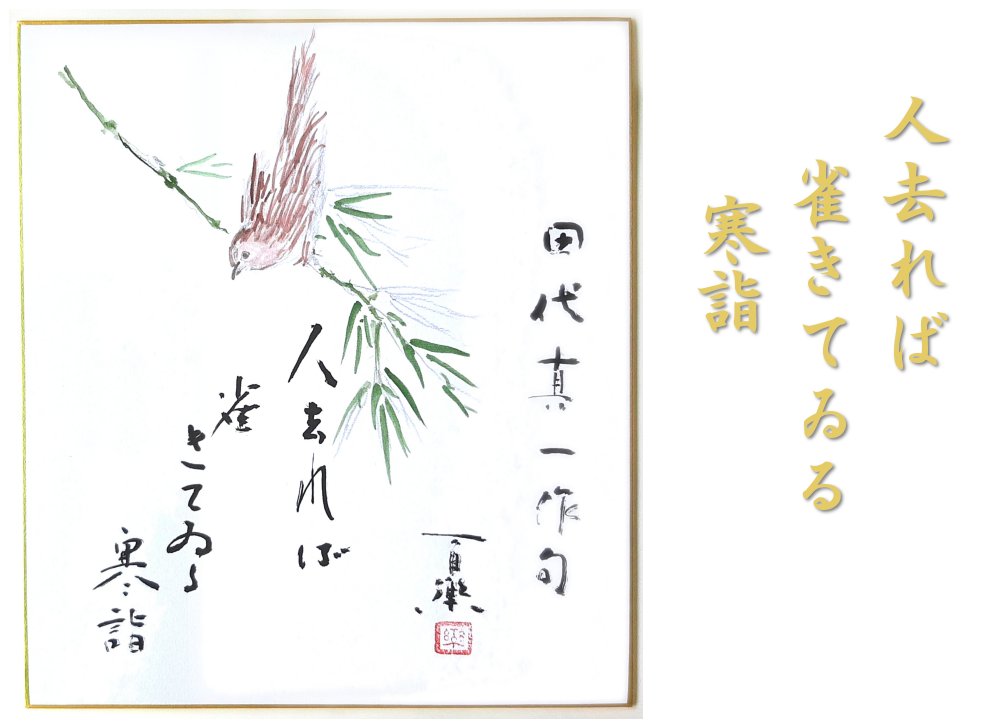 人去れば
雀きてゐる
寒詣
田代真一作句
百樂
人去れば
雀
きてゐる
寒詣